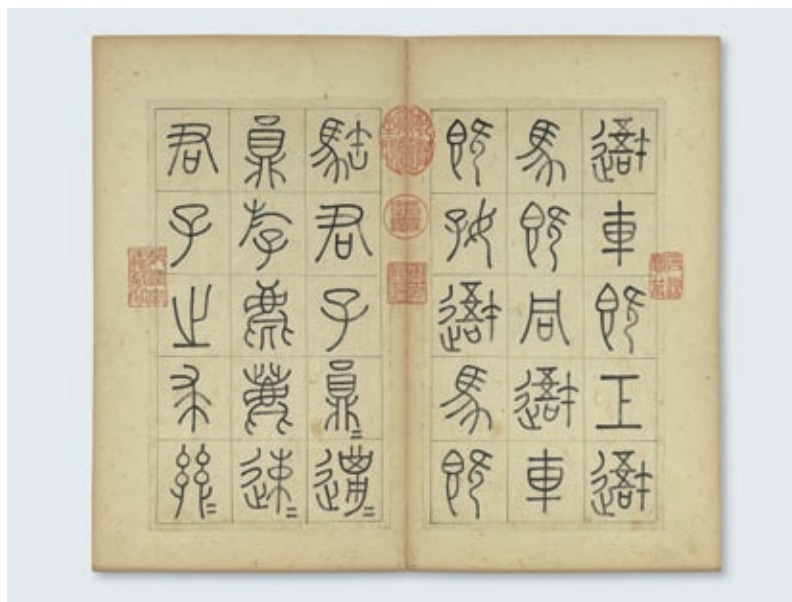 吾車既工吾
馬既同吾車
既好吾馬既
駐君子員邋
員斿麀鹿速
君子之求